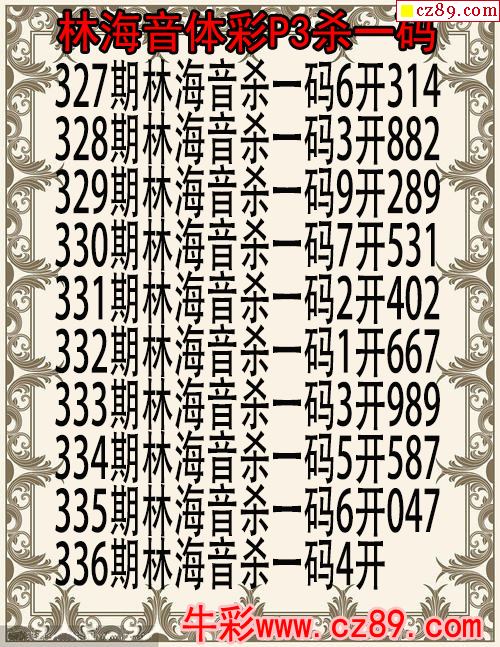 cz89.com
林海音体彩P3杀一码
327期林海音杀一码6开314
328期林海音杀一码3开882
329期林海音杀一码9开289
330期林海音杀一码7开531
331期林海音杀一码2开402
332期林海音杀一码1开667
333期林海音杀一码3开989
334期林海音杀一码5开587
335期林海音杀一码6开047
336期林海音杀一码4开
牛彩www.cz89.com